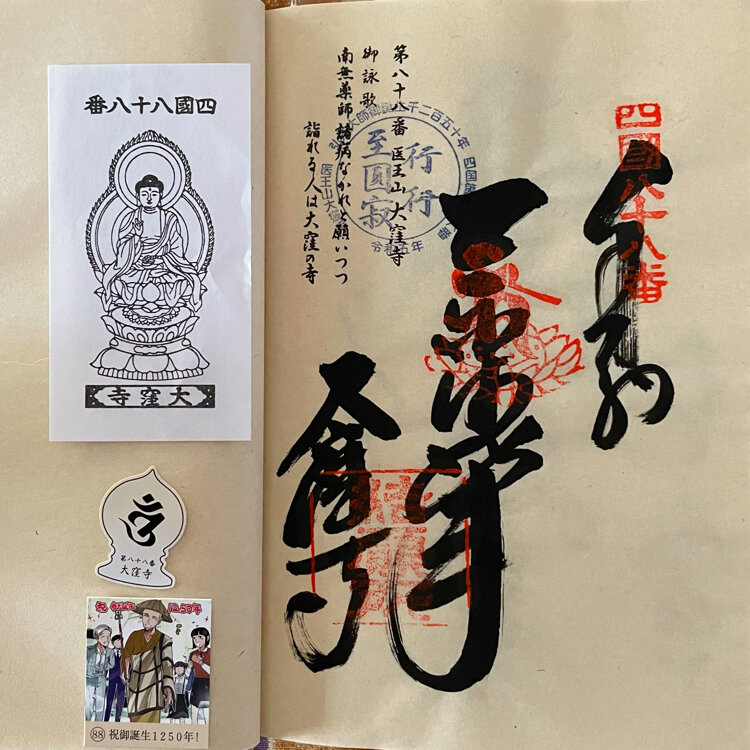 四國八十八番
大窪寺
第八十八番
大窪寺
祝 御誕生 1250年
88 祝御誕生1250年!
四国八十八番
奉納
大窪寺
第八十八番 医王山 大窪寺
御詠歌
南無薬師諸病なかれと願いつつ
詣れる人は大窪の寺
行行
至圓寂
令和五年